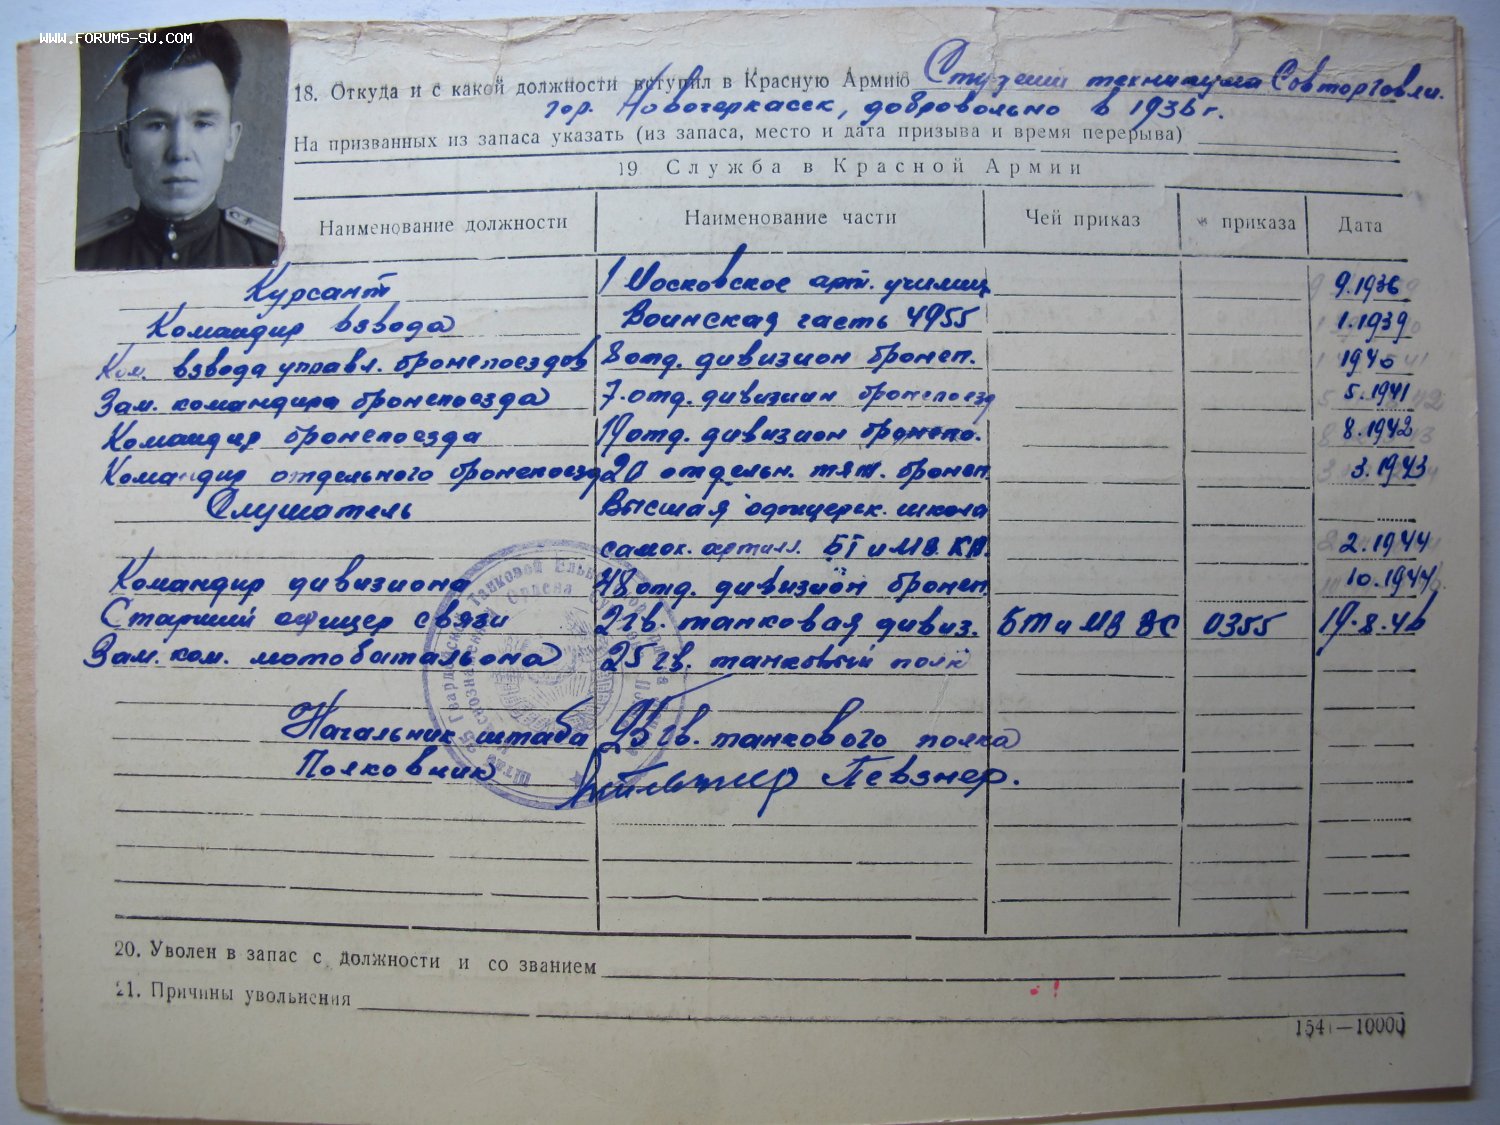 WWW.FORUMS-SU.COM
18. Откуда и с какой должности вступил в Красную Армию Студент техникума Совторговли.
гор. Новочеркасск, добровольно в 1936 г.
На призванных из запаса указать (из запаса, место и дата призыва и время перерыва)
19 Служба в Красной Армии
Наименование должности Наименование части Чей приказ № приказа Дата
Курсант 1 Московское арт. училищ 9.1936
Командир взвода Воинская часть 4955 1.1939
Ком. взвода управл. бронепоездов 8 отд. дивизион бронеп. 1940
Зам. командира бронепоезда 7 отд. дивизион бронепоезд 5.1941
Командир бронепоезда 19 отд. дивизион бронепо. 8.1942
Командир отдельного бронепоезда 20 отдельн. тяж. бронеп. 3.1943
Слушатель Высшая офицерск. школа
самох. артилл. БТ и МВ КА. 2.1944
Командир дивизиона 48 отд. дивизион бронеп. 10.1944
Старший офицер связи 2 гв. танковая дивиз. БТ и МВ ВС 0355 19.8.46
Зам. ком. мотобатальона 25 гв. танковый полк
Начальник штаба 25 гв. танкового полка
Полковник Певзнер.
20. Уволен в запас с должности и со званием
21. Причины увольнения
1541—10000